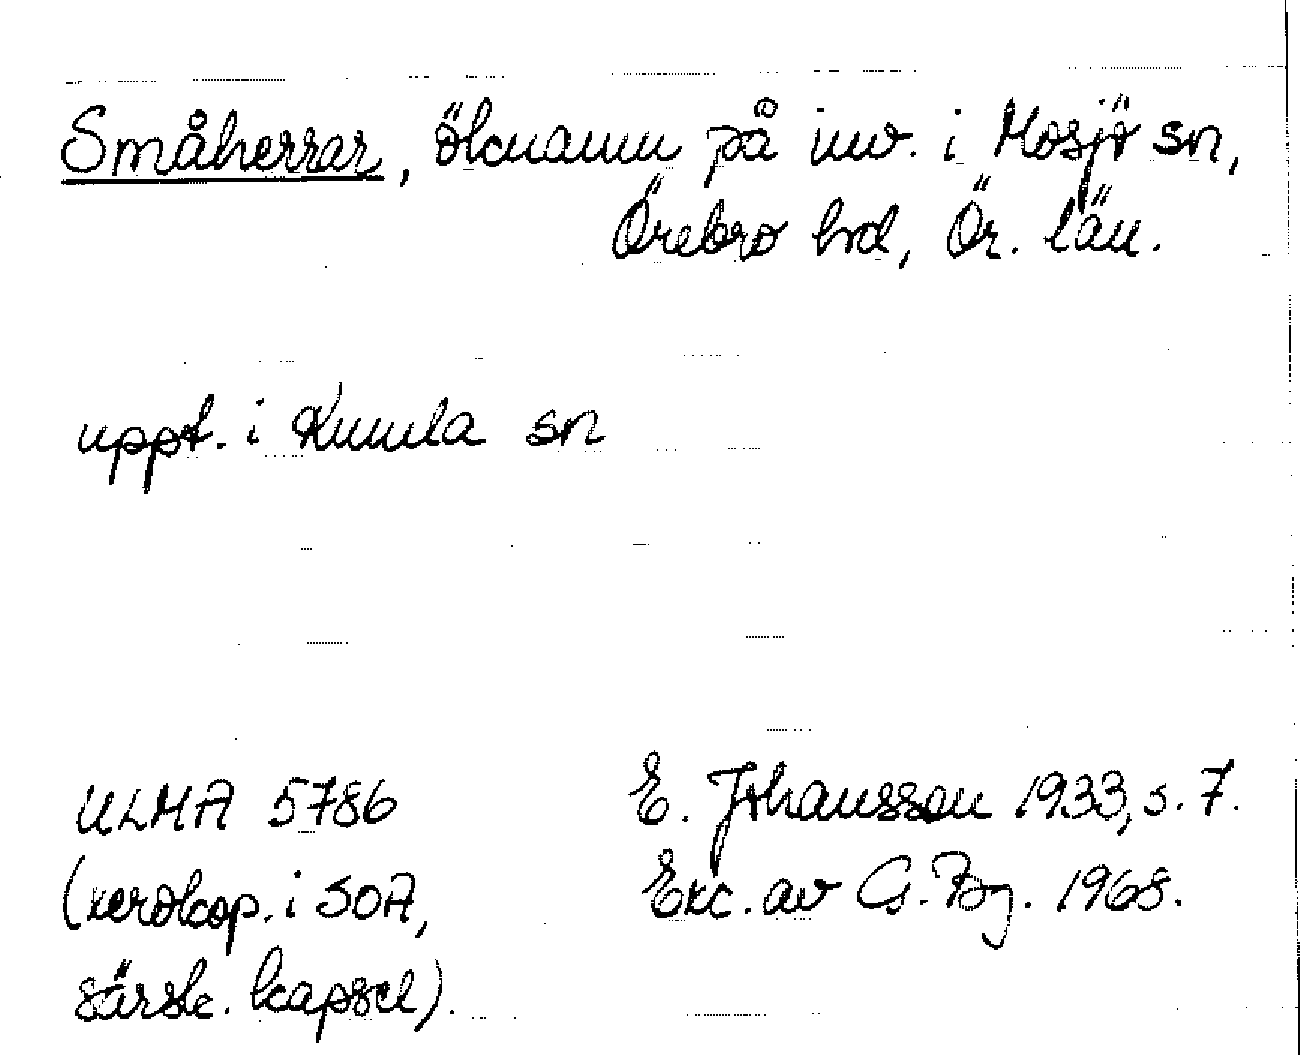 Småherrar, öknamn på inv. i Mosjö sn,
Örebro hd, Ör. län.
uppt. i Kumla sn
ULMA 5786
(xerokop. i SOA,
särsk. kapsel).
E. Johansson 1933, s. 7.
Exc. av G. Bg. 1968.